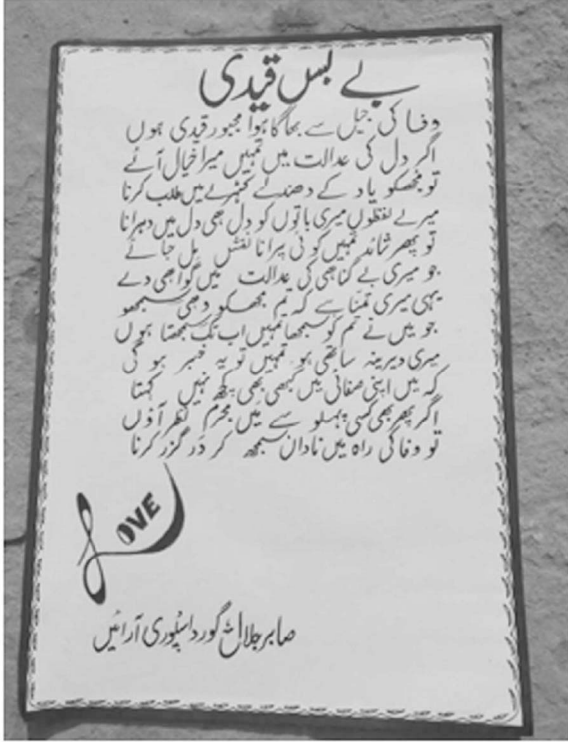 بے بس قیدی
وفا کی جیل سے بھاگا ہوا مجبور قیدی ہوں
اگر دل کی عدالت میں تمہیں میرا خیال آئے
تو مجھکو یاد کے دھندلے کٹہرے میں طلب کرنا
میرے لفظوں میری باتوں کو دل ھی دل میں دہرانا
تو پھر شائد تمہیں کوئی پرانا نقش مل جائے
جو میری بے گناھی کی عدالت میں گواھی دے
یہی میری تمنا ہے کہ تم مجھکو وھی سمجھو
جو میں نے تم کو سمجھا تمہیں اب تک سمجھتا ہوں
میری دیرینہ ساتھی ہو تمہیں تو یہ خبر ہو گی
کہ میں اپنی صفائی میں کبھی بھی کچھ نہیں کہتا
اگر پھر بھی کسی پہلو سے میں مجرم نظر آؤں
تو وفا کی راہ میں ناداں سمجھ کر در گزر کرنا
LOVE
صابر جلال گورداسپوری آرائیں